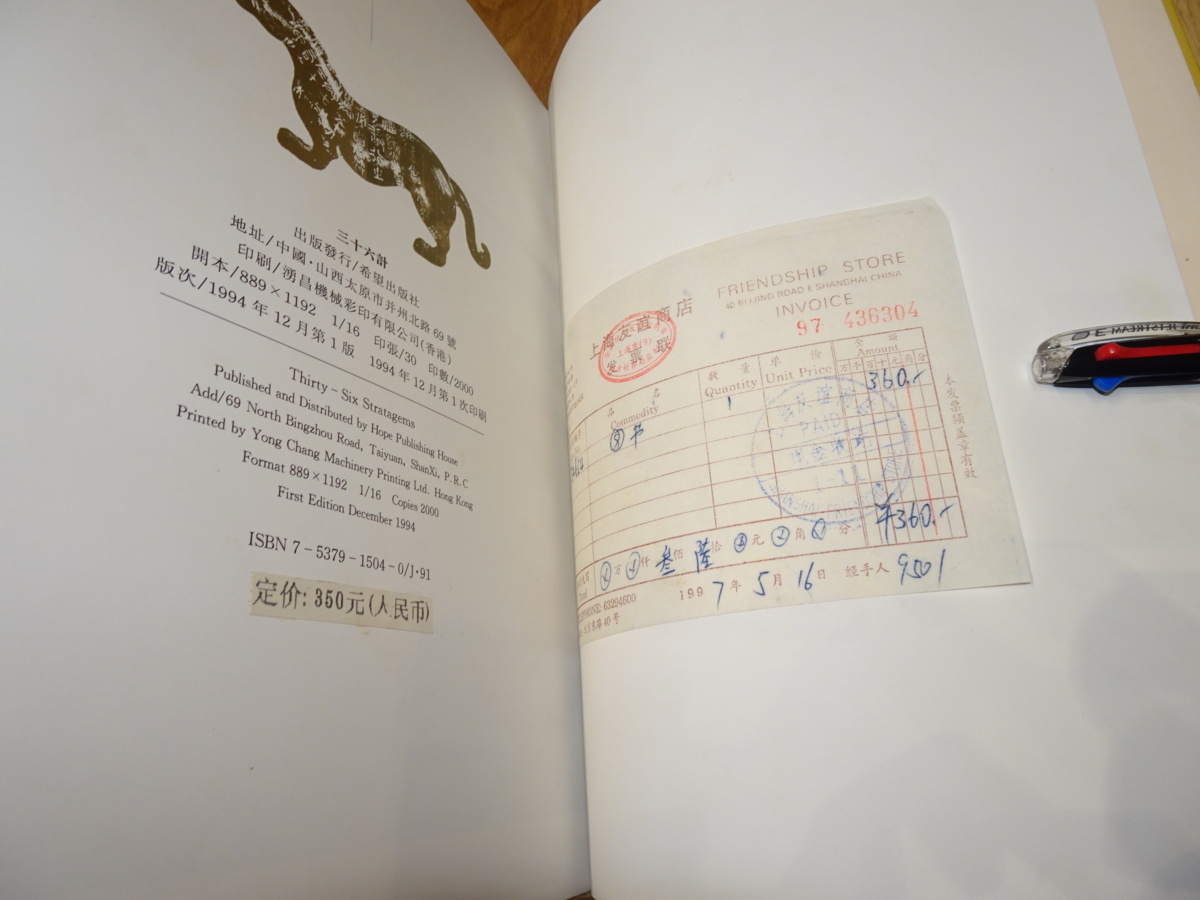 三十六計
出版發行/希望出版社
地址/中國·山西太原市并州北路69號
印刷/湧昌機械彩印有限公司(香港)
開本/889×1192 1/16 印張/30 印數/2000
版次/1994年12月第1版 1994年12月第1次印刷
Thirty-Six Stratagems
Published and Distributed by Hope Publishing House
Add/69 North Bingzhou Road, Taiyuan, ShanXi, P.R.C
Printed by Yong Chang Machinery Printing Ltd. Hong Kong
Format 889×1192 1/16 Copies 2000
First Edition December 1994
ISBN 7-5379-1504-0/J·91
定价: 350元(人民币)
上海友谊商店
发票联
FRIENDSHIP STORE
40 BEIJING ROAD E SHANGHAI CHINA
INVOICE
97 436304
品名
Commodity
数量
Quantity
单价
Unit Price
金額
Amount
万千百十元角分
书
1
360.-
PAID
¥360.-
万 仟 叁佰 陆拾 元 角 分
1997年5月16日 经手人 9501
PHONE: 63294600
东路40号
本发票须盖章有效
JETSTREAM